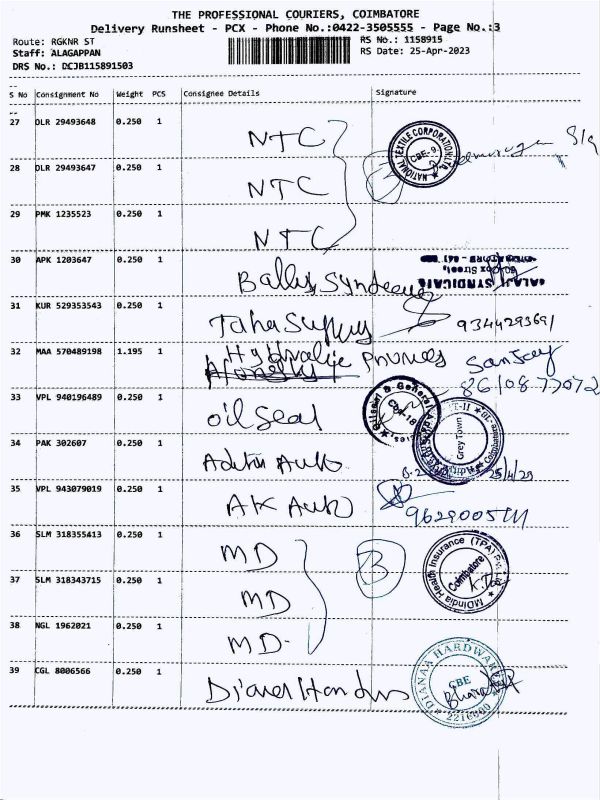 THE PROFESSIONAL COURIERS, COIMBATORE
Delivery Runsheet - PCX - Phone No.:0422-3505555 - Page No.:3
Route: RGKNR ST
RS No.: 1158915
Staff: ALAGAPPAN
RS Date: 25-Apr-2023
DRS No.: DCJB115891503
S No Consignment No Weight PCS Consignee Details Signature
27 DLR 29493648 0.250 1 NTC
NATIONAL TEXTILE CORPORATION CBE-9
28 DLR 29493647 0.250 1 NTC
29 PMK 1235523 0.250 1 NTC
30 APK 1203647 0.250 1
SYNDICATE
31 KUR 529353543 0.250 1 Taha
9344293691
32 MAA 570489198 1.195 1
Sanjay
8610877072
33 VPL 940196489 0.250 1 oil seal
& General
Grey Town
34 PAK 302607 0.250 1 Auto
25/4/23
35 VPL 943079019 0.250 1 AK Auto
36 SLM 318355413 0.250 1 MD
B
MDIndia Health Insurance (TPA) Pvt. Ltd. Coimbatore
37 SLM 318343715 0.250 1 MD
38 NGL 1962021 0.250 1 MD
39 CGL 8006566 0.250 1
DIANAH HARDWARE CBE